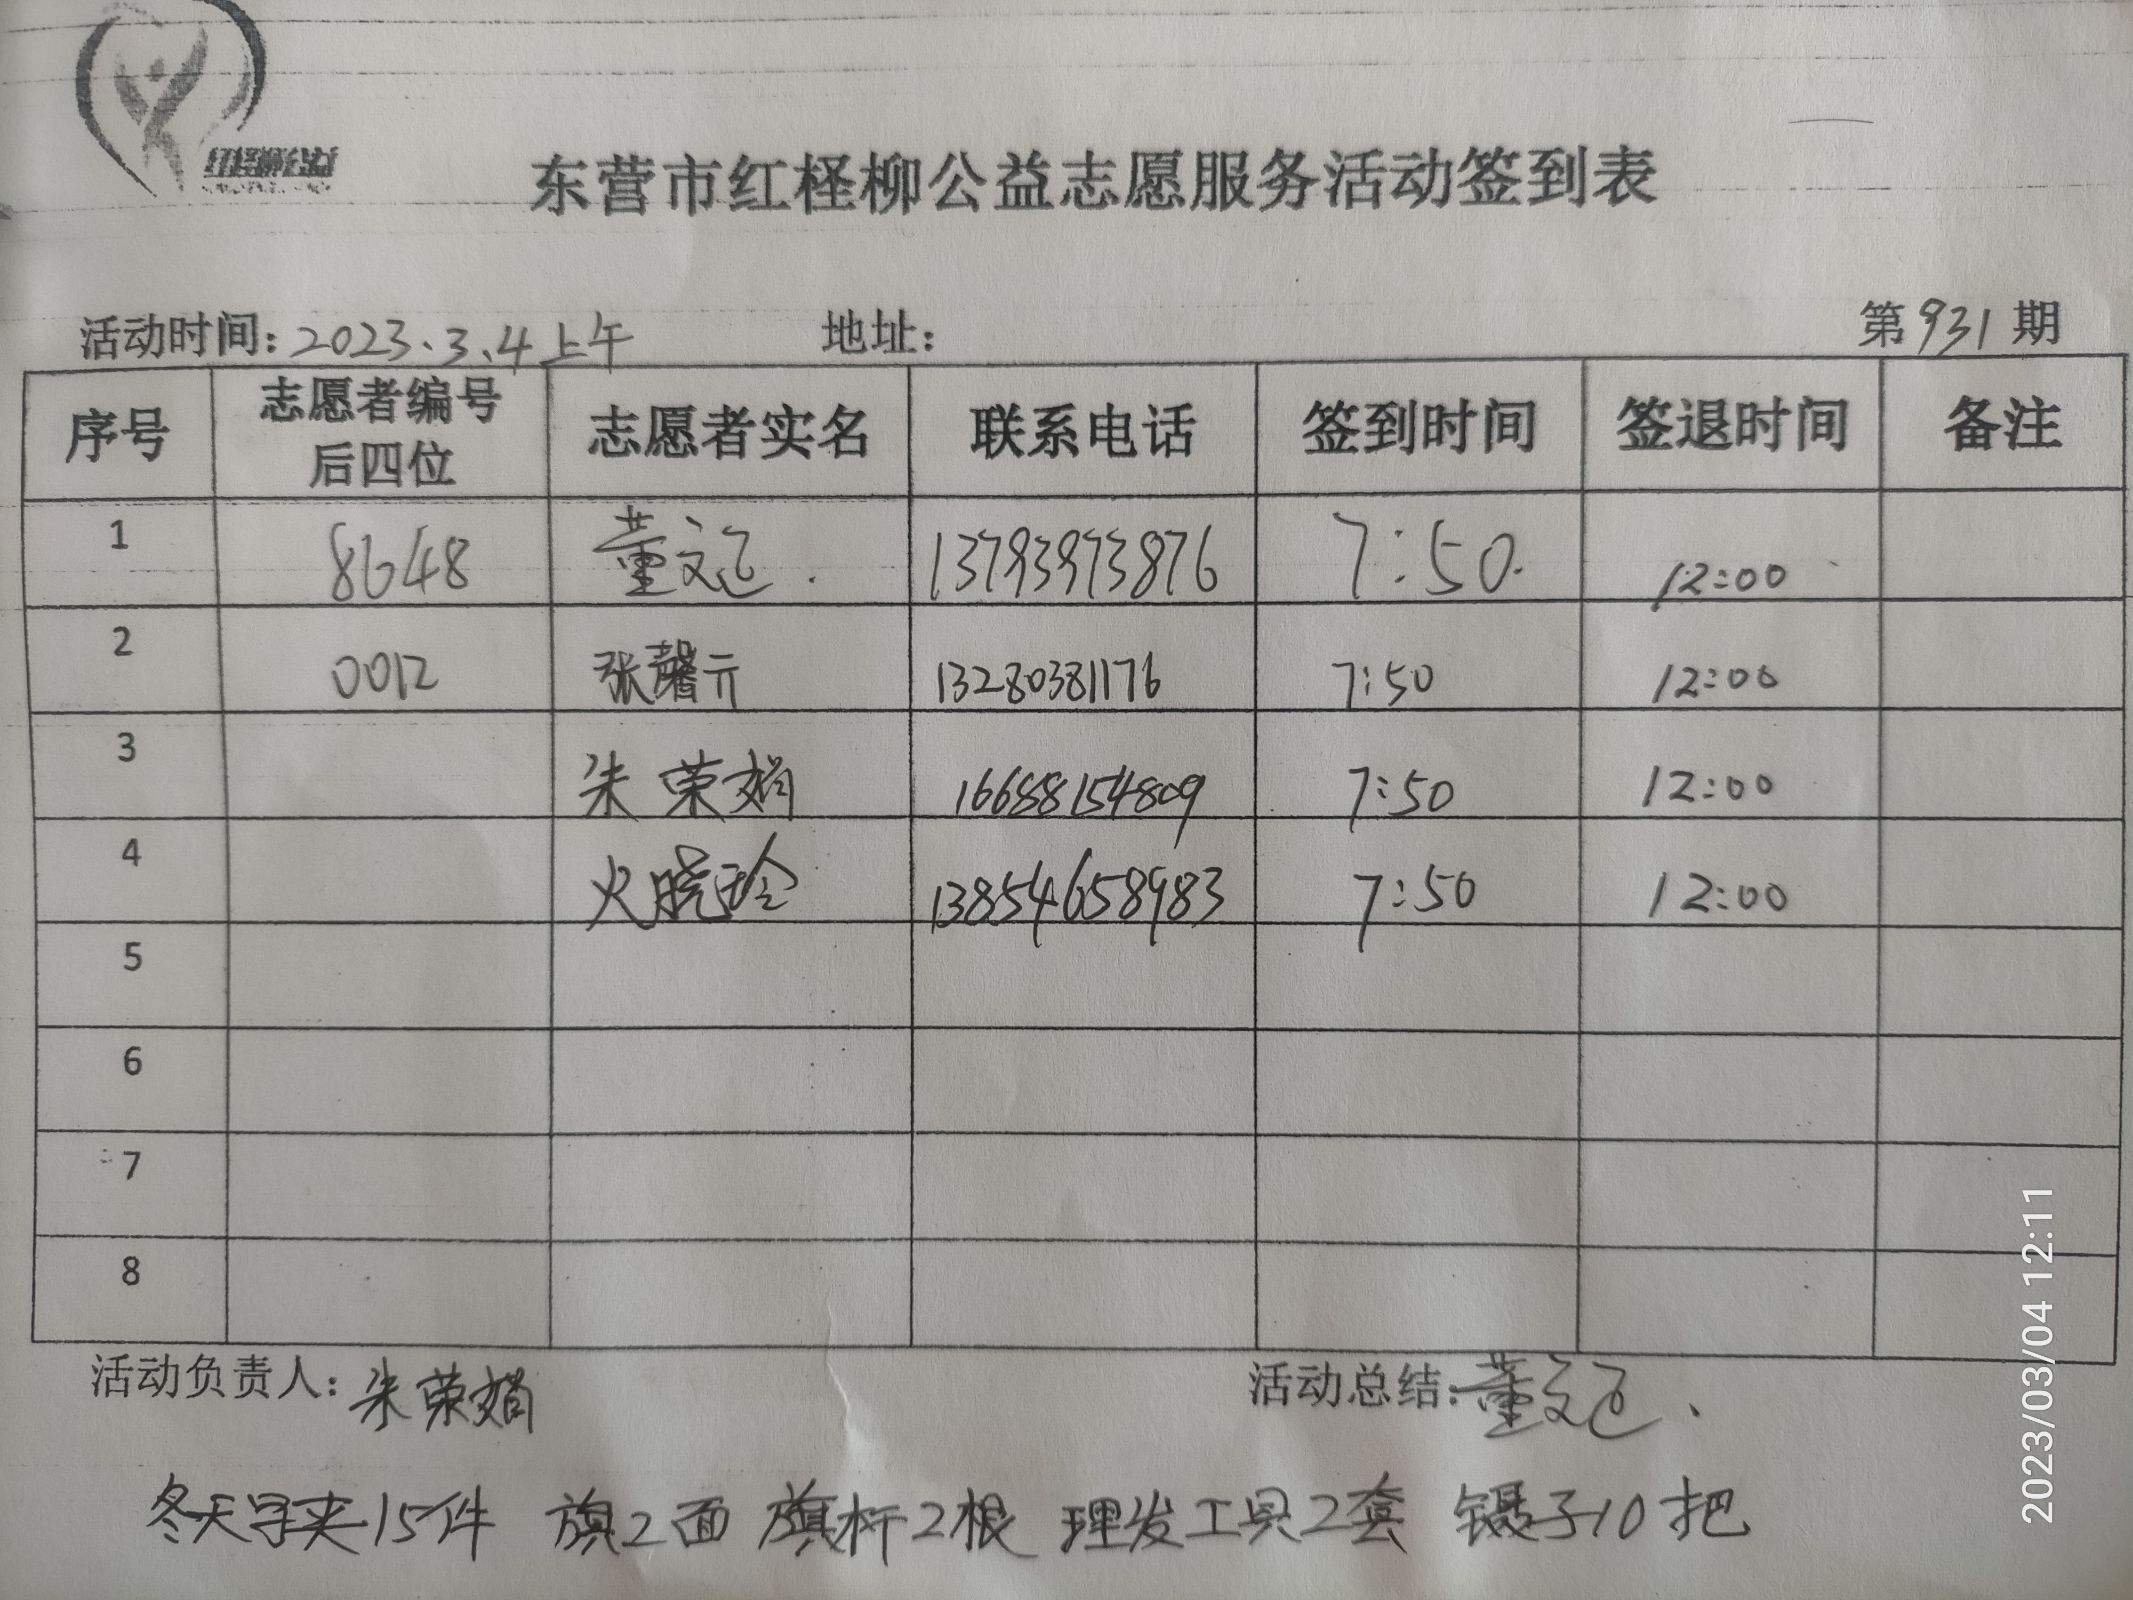 红柽柳公益
东营市红柽柳公益志愿服务活动签到表
活动时间：2023.3.4上午 地址： 第931期
序号 志愿者编号后四位 志愿者实名 联系电话 签到时间 签退时间 备注
1 8648 董文 13793973876 7:50 12:00
2 0012 张馨元 13280381176 7:50 12:00
3 朱荣娟 16688154809 7:50 12:00
4 火晓玲 13854658983 7:50 12:00
5
6
7
8
活动负责人：朱荣娟 活动总结：董文
冬天马夹15件 旗2面 旗杆2根 理发工具2套 镊子10把
2023/03/04 12:11